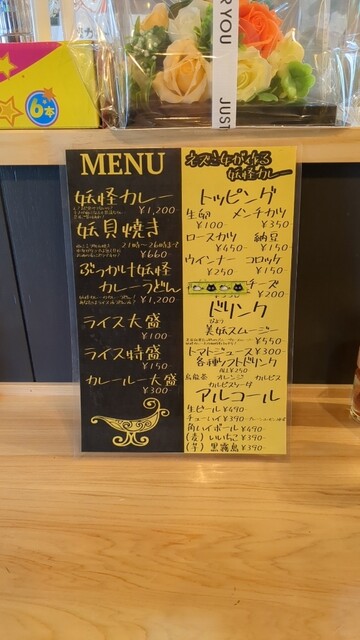 R YOU
JUST
6本
MENU
妖怪カレー
¥1,200-
妖貝焼き
21時〜26時まで
¥660-
ぶっかけ妖怪
カレーうどん
¥1,200
ライス大盛
¥100
ライス特盛
¥150
カレールー大盛
¥300-
妖怪カレー
トッピング
生卵 メンチカツ
¥100- ¥350
ロースカツ 納豆
¥450- ¥150
ウインナー コロッケ
¥250 ¥150
チーズ
¥200
ドリンク
美妖スムージー
¥550
トマトジュース ¥300
各種ソフトドリンク
ALL ¥250
烏龍茶 オレンジ カルピス
カルピスソーダ
アルコール
生ビール ¥490
チューハイ ¥390
角ハイボール ¥490-
(麦) いいちこ ¥390-
(芋) 黒霧島 ¥390-